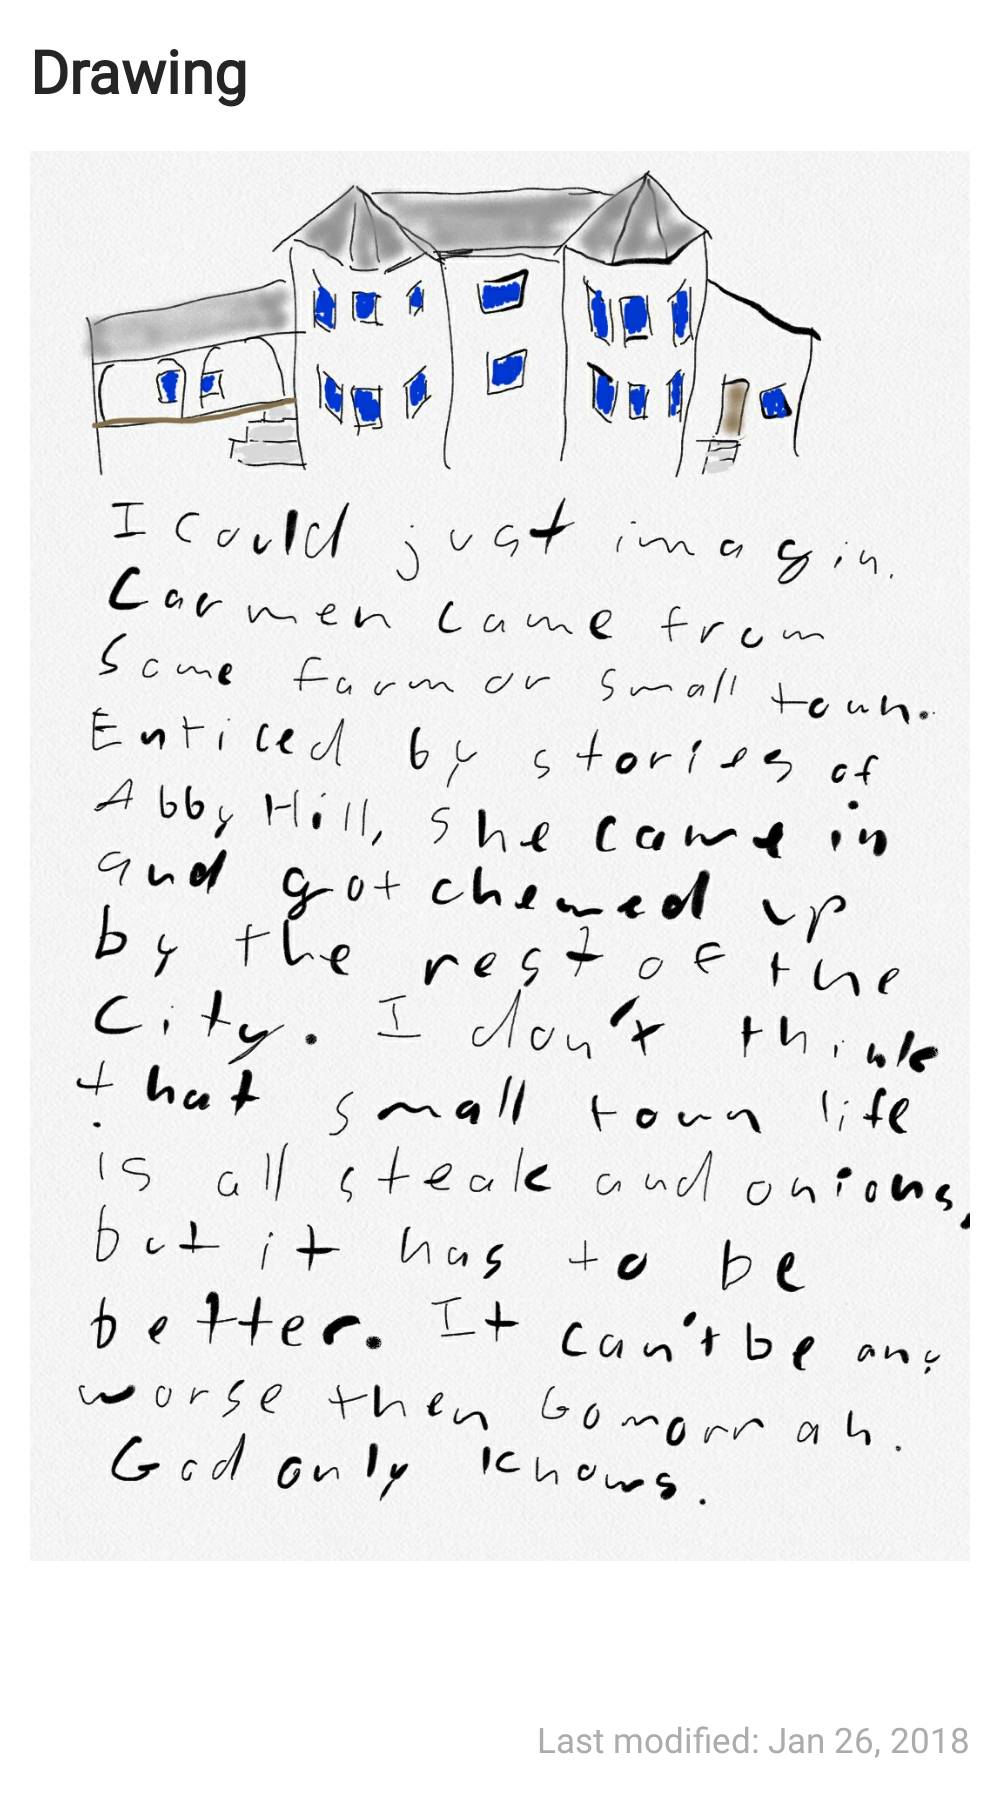 Drawing
I could just imagin.
Carmen came from
Some farm or small town.
Enticed by stories of
Abby Hill, She came in
and got chewed up
by the rest of the
City. I don't think
that small town life
is all steak and onions,
but it has to be
better. It can't be any
worse then Gomorrah.
God only knows.
Last modified: Jan 26, 2018